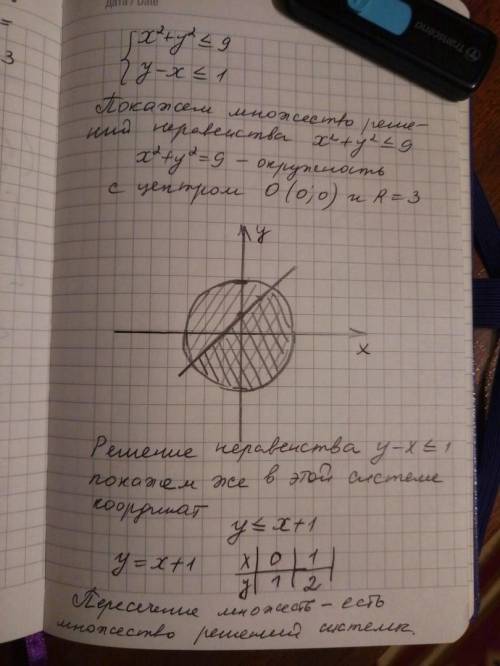 Дата / Date
Transcend
=
3
{x²+y² ≤ 9
{y-x ≤ 1
Покажем множество реше-
ний неравенства x²+y² ≤ 9
x²+y²=9 - окружность
с центром O (0;0) и R = 3
y
x
Решение неравенства y-x ≤ 1
покажем же в этой системе
координат
y ≤ x+1
y = x+1 x | 0 | 1
y | 1 | 2
Пересечение множеств - есть
множество решений системы.